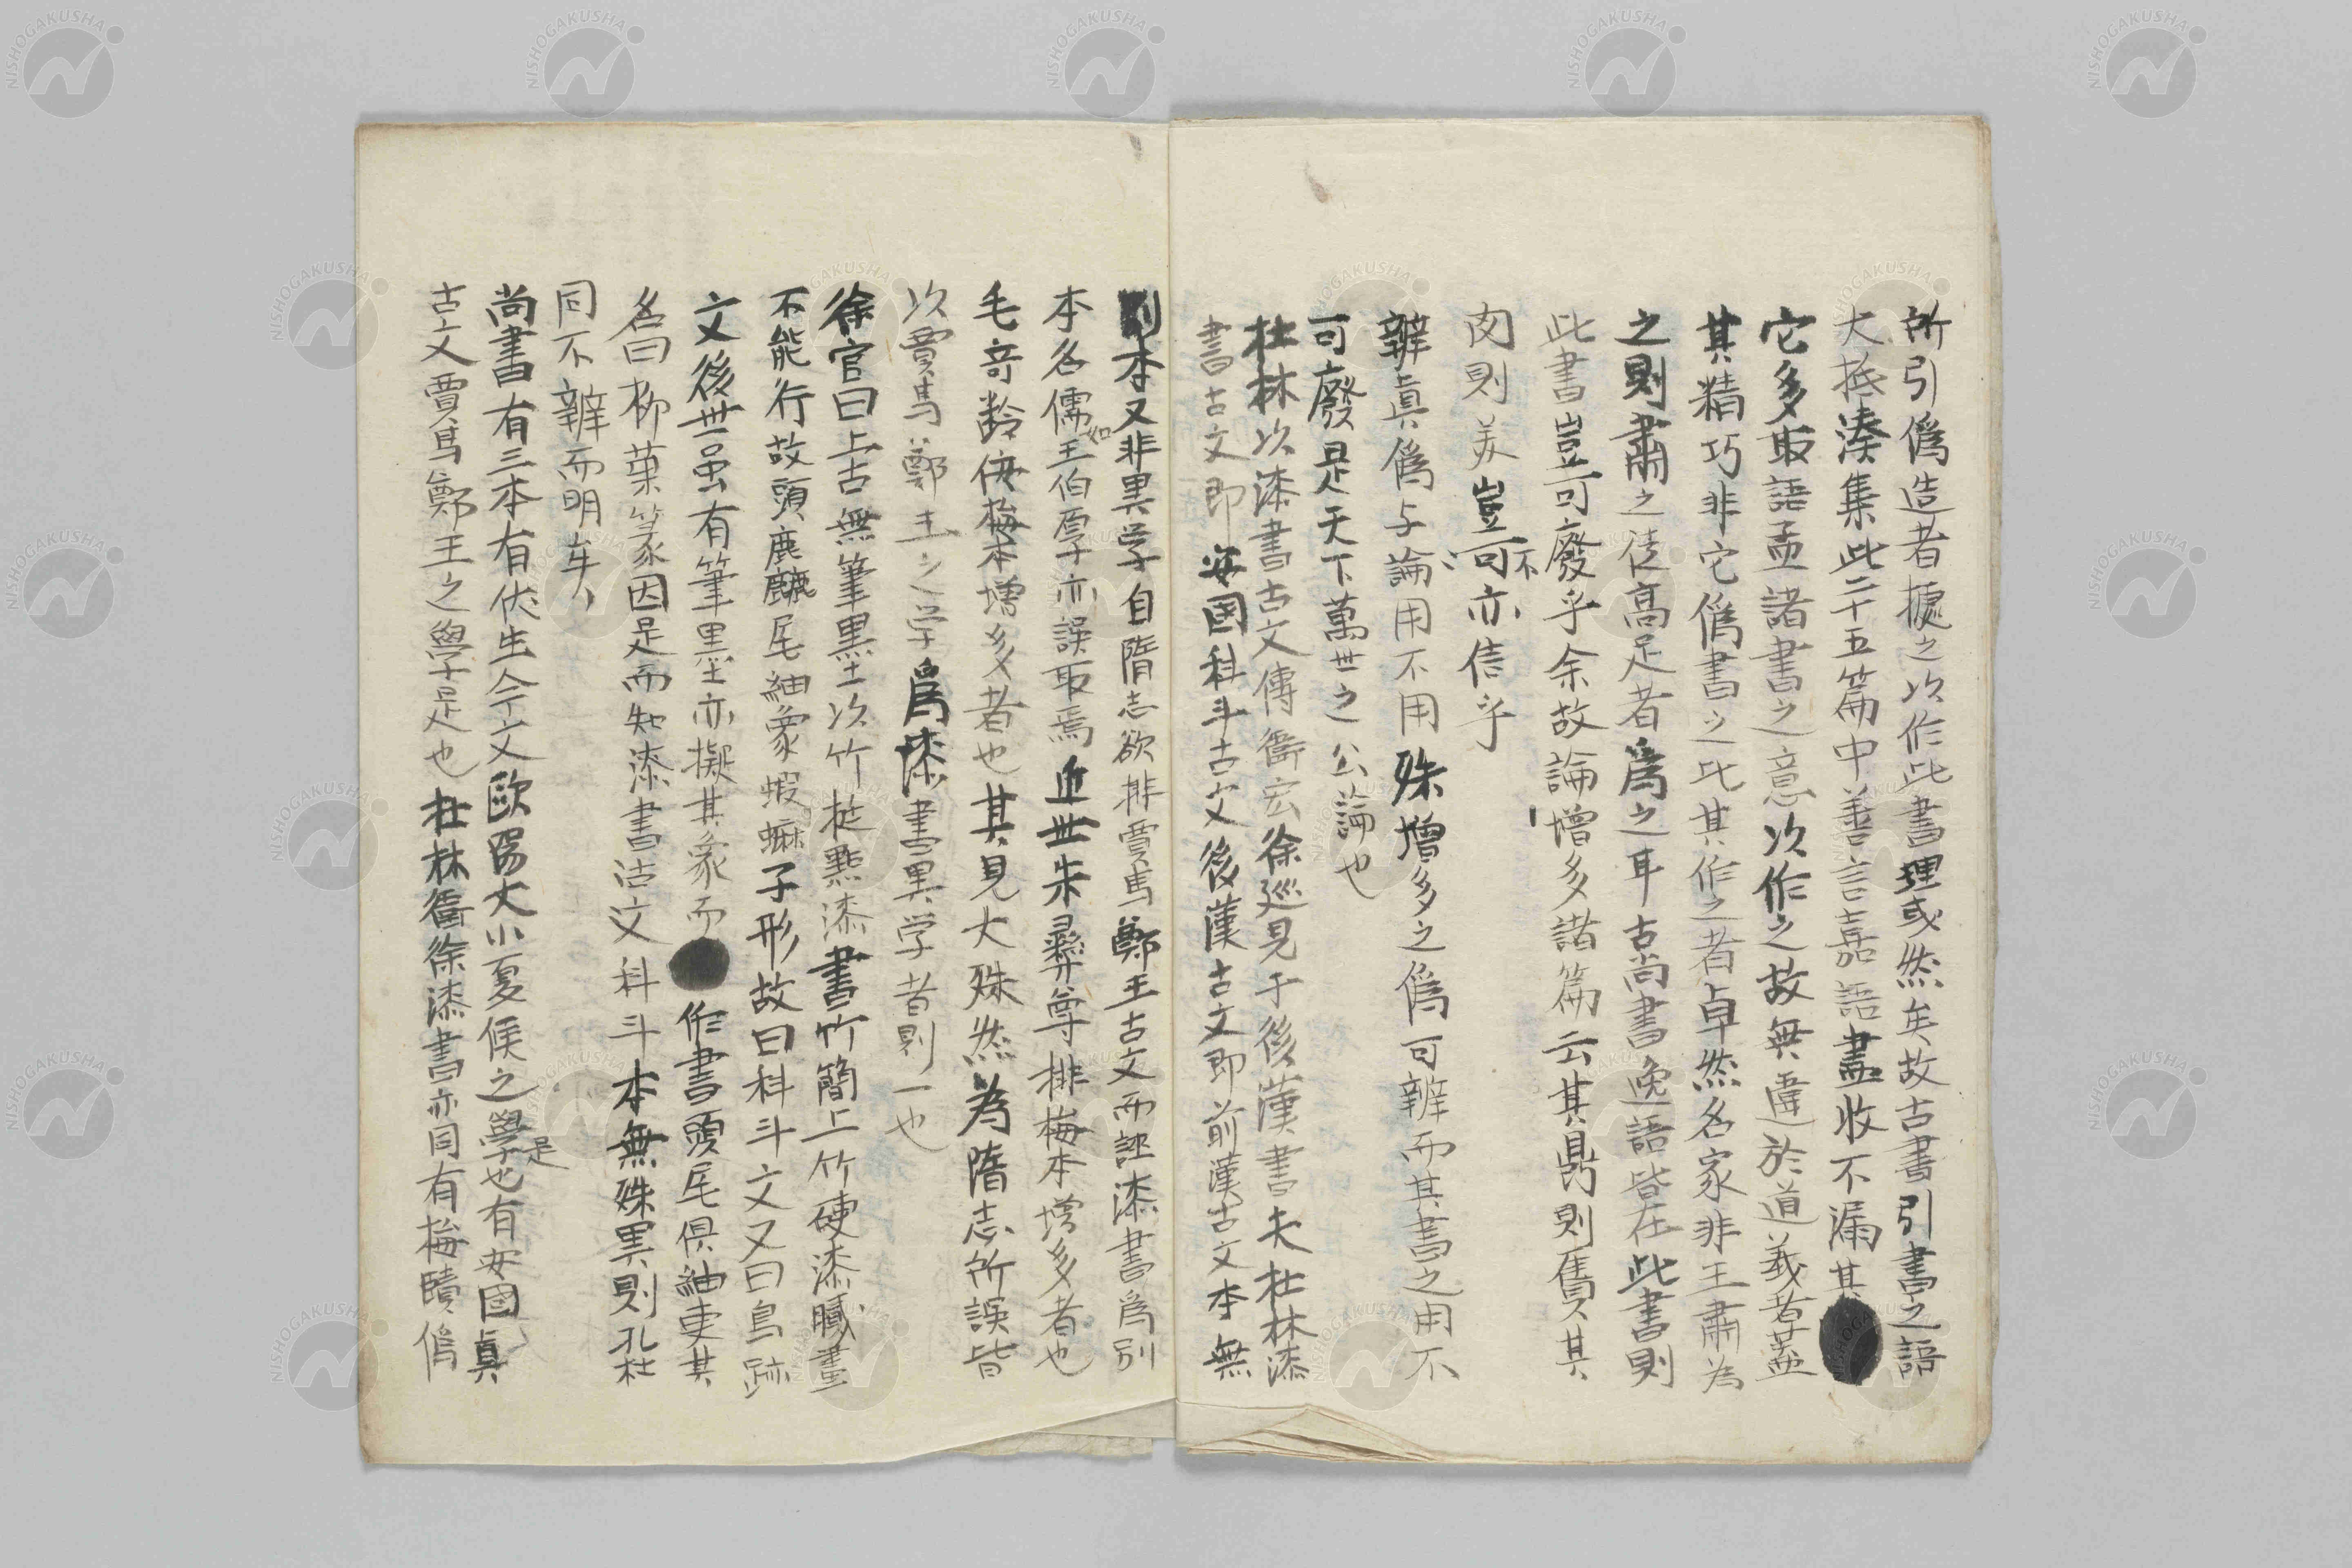 所引僞造者據之以作此書理或然矣故古書引書之語
大抵湊集此二十五篇中善言嘉語盡收不漏其
它多取語孟諸書之意以作之故無違於道義者蓋
其精巧非它僞書之比其作之者卓然名家非王肅為
之則肅之徒高足者爲之耳古尚書逸語皆在此書則
此書豈可廢乎余故論增多諸篇云其鼎則贋其
肉則美豈可不亦信乎
辨眞僞与論用不用殊增多之僞可辨而其書之用不
可廢是天下萬世之公論也
杜林以漆書古文傳衞宏徐巡見于後漢書夫杜林漆
書古文即安国科斗古文後漢古文即前漢古文本無
別本又非異学自隋志欲排賈馬鄭王古文而誣漆書爲別
本名儒如王伯厚亦誤取焉近世朱彝尊排梅本增多者也
毛竒齡佞梅本增多者也其見大殊然為隋志所誤皆
以賈馬鄭王之学爲漆書異学者則一也
徐官曰上古無筆墨以竹梃點漆書竹簡上竹硬漆膩畫
不能行故頭麁尾細象蝦蟆子形故曰科斗文又曰鳥跡
文後世虽有筆墨亦擬其象而作書頭尾俱細更其
名曰柳葉篆因是而知漆書古文科斗本無殊異則孔杜
同不辨而明矣
尚書有三本有伏生今文歐陽大小夏侯之學是也有安國眞
古文賈馬鄭王之學是也杜林衞徐漆書亦同有梅賾僞
NISHOGAKUSHA